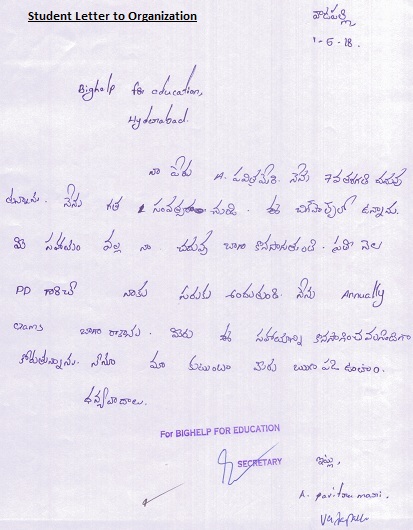 Student Letter to Organization
వాడపల్లి
1-6-18.
Bighelp for education,
Hyderabad.
నా పేరు A. పవిత్రమేరి. నేను 7వ తరగతి చదువు
తున్నాను. నేను గత 2 సంవత్సరాల నుండి. ఈ ఉన్నాను.
మీ సహాయం వల్ల నా. చదువు బాగా కొనసాగుతుంది. ప్రతి నెల
PD గారిచే నాకు సరుకు అందుతుంది. నేను Annually
exams బాగా రాశాను. మీరు ఈ సహాయాన్ని
కోరుతున్నాను. నేనూ మా కుటుంబం మీకు ఋణపడి ఉంటాం.
ధన్యవాదాలు.
For BIGHELP FOR EDUCATION
SECRETARY
ఇట్లు,
A. pavitra mani.